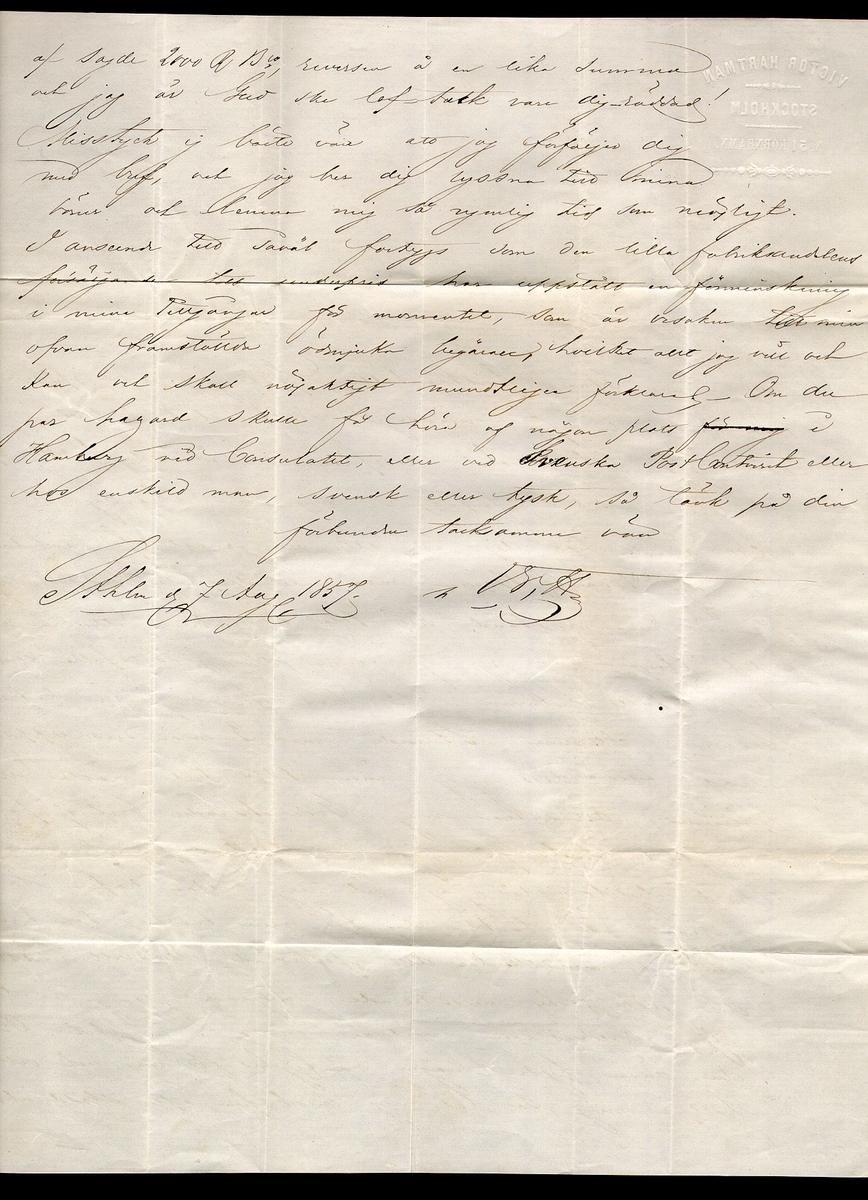 af sagde 2000 R Bco, reversen å en lika summa
och jag är Gud ske lof-tack vare dig-räddad!
Misstyck ej bäste vän att jag förföljer dig
med bref, och jag ber dig lyssna till mina
böner och lemna mig så rymlig tid som möjligt.
I anseende till såväl fartygs som den lilla fabrikandelens
försäljande till underpris har uppstått en förminskning
i mina tillgångar för momentet, som är orsaken till min
ofvan framställda ödmjuka begäran, hvilket allt jag vill och
kan och skall nöjaktigt mundtligen förklara. Om du
par hazard skulle få höra af någon plats för mig i
Hamburg vid Consulatet, eller vid Svenska Postcontoiret eller
hos enskild man, svensk eller tysk, så tänk på din
förbundne tacksamme vän
Sthlm d 7 Aug 1857.
VICTOR HARTMAN
STOCKHOLM